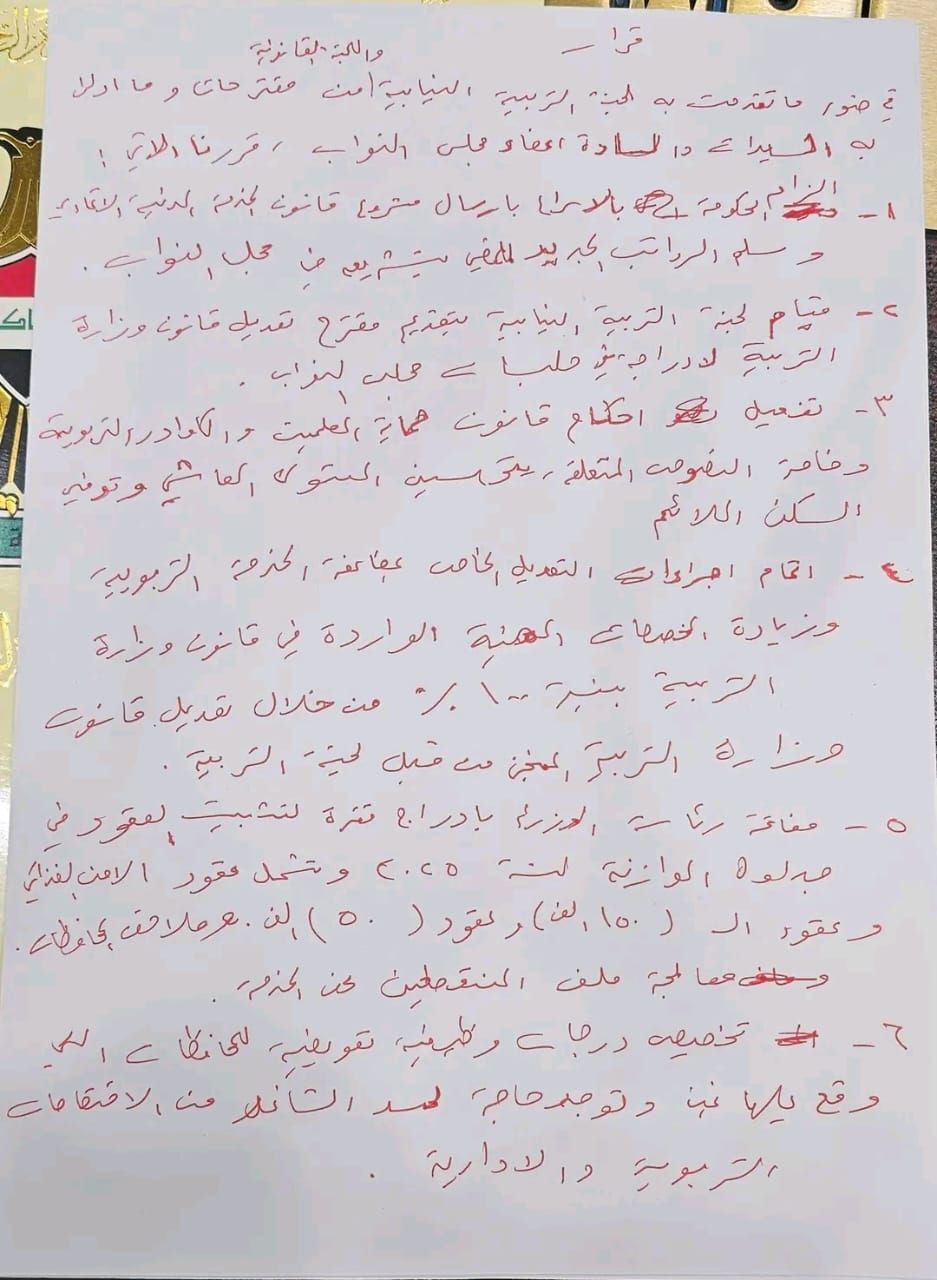 قرار
واللجنة القانونية
في ضوء ما تقدمت به لجنة التربية النيابية من مقترحات وما ادلى
به السيدات والسادة اعضاء مجلس النواب ، قررنا الاتي :
١- الزام الحكومة بالاسراع بارسال مشروع قانون الخدمة المدنية الاتحادي
وسلم الرواتب الجديد للمضي بتشريعه في مجلس النواب .
٢- قيام لجنة التربية النيابية بتقديم مقترح تعديل قانون وزارة
التربية لادراجه في جلسات مجلس النواب .
٣- تفعيل احكام قانون حماية المعلمين والكوادر التربوية
وخاصة النصوص المتعلقة بتحسين المستوى المعاشي وتوفير
السكن الملائم
٤- اتمام اجراءات التعديل الخاص بمضاعفة الخدمة التربوية
وزيادة المخصصات المهنية الواردة في قانون وزارة
التربية بنسبة ١٠٠ ٪ من خلال تعديل قانون
وزارة التربية المنجز من قبل لجنة التربية .
٥- مفاتحة رئاسة الوزراء بادراج فقرة لتثبيت العقود في
جداول الموازنة لسنة ٢٠٢٥ وتشمل عقود الامن الغذائي
وعقود الـ (١٥٠ الف) وعقود (٥٠) الف . من ملاكات المحافظات .
ومعالجة ملف المنقطعين عن الخدمة .
٦- تخصيص درجات وظيفية تعويضية للمحافظات التي
وقع عليها غبن وتوجد حاجة لسد الشاغر من الاختصاصات
التربوية والادارية .